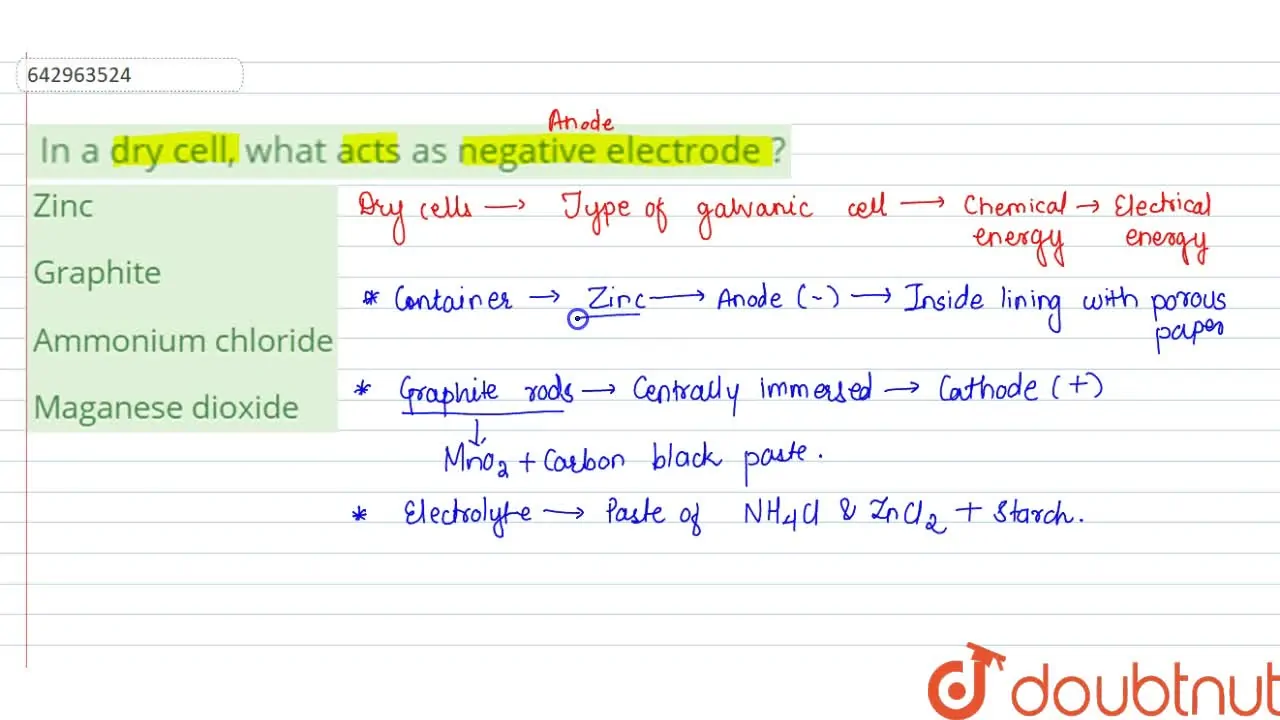 642963524
Anode
In a dry cell, what acts as negative electrode ?
Zinc
Graphite
Ammonium chloride
Maganese dioxide
Dry cells → Type of galvanic cell → Chemical energy → Electrical energy
* Container → Zinc → Anode (-) → Inside lining with porous paper
* Graphite rods → Centrally immersed → Cathode (+)
↓
MnO2 + Carbon black paste.
* Electrolyte → Paste of NH4Cl & ZnCl2 + Starch.
doubtnut